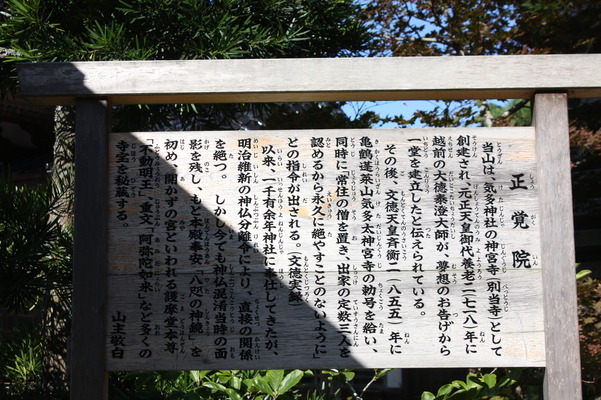 正覚院
当山は、気多神社の神宮寺（別当寺）として
創建され、元正天皇御代養老二（七一八）年に
越前の大徳泰澄大師が、夢想のお告げから
一堂を建立したと伝えられている。
その後、文徳天皇斉衡二（八五五）年に
亀鶴蓬莱山気多太神宮寺の勅号を給い、
同時に「常住の僧を置き、出家の定数三人を
認めるから永久に絶やすことのないように」
との指令が出される。（文徳実録）
以来、一千有余年神社に奉仕してきたが、
明治維新の神仏分離令により、直接の関係
を絶つ。しかし今でも神仏混淆当時の面
影を残し、もと本殿奉安、八尺の神鏡」を
初め、「開かずの宮といわれる護摩堂本尊
「不動明王」、重文「阿弥陀如来」など多くの
寺宝を秘蔵する。
山主敬白